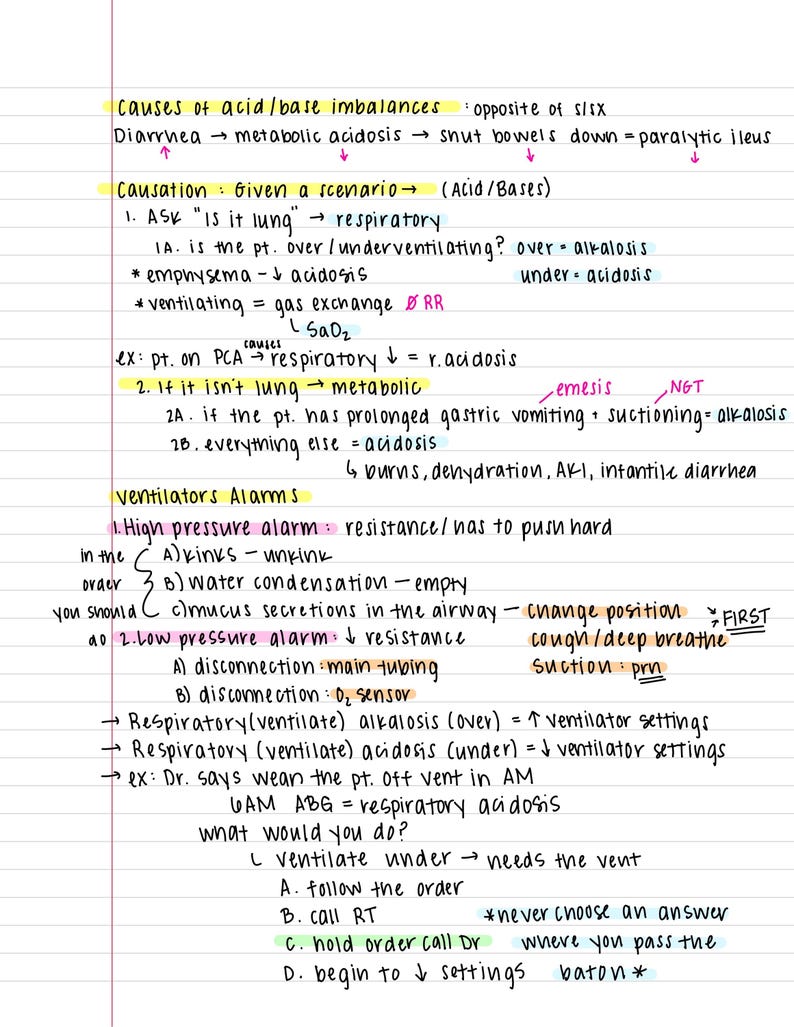 causes of acid/base imbalances : opposite of s/sx
Diarrhea → metabolic acidosis → shut bowels down = paralytic ileus
↑ ↓ ↓ ↓
Causation : Given a scenario → (Acid/Bases)
1. ASK "Is it lung" → respiratory
1A. is the pt. over/underventilating? over = alkalosis
* emphysema - ↓ acidosis under = acidosis
* ventilating = gas exchange Ø RR
└ SaO₂
ex: pt. on PCA causes → respiratory ↓ = r.acidosis
2. If it isn't lung → metabolic emesis NGT
2A. if the pt. has prolonged gastric vomiting + suctioning = alkalosis
2B. everything else = acidosis
↳ burns, dehydration, AKI, infantile diarrhea
Ventilators Alarms
1. High pressure alarm : resistance/has to push hard
in the order you should do
A) kinks - unkink
B) water condensation - empty
c) mucus secretions in the airway - change position → FIRST
2. Low pressure alarm: ↓ resistance cough/deep breathe
A) disconnection : main tubing suction : prn
B) disconnection : O₂ sensor
→ Respiratory (ventilate) alkalosis (over) = ↑ ventilator settings
→ Respiratory (ventilate) acidosis (under) = ↓ ventilator settings
→ ex: Dr. says wean the pt. off vent in AM
6AM ABG = respiratory acidosis
what would you do?
└ ventilate under → needs the vent
A. follow the order
B. call RT *never choose an answer
C. hold order call Dr where you pass the
D. begin to ↓ settings baton *